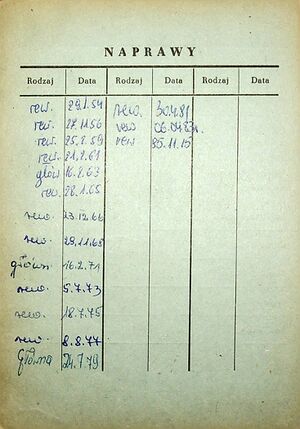 NAPRAWY
Rodzaj Data Rodzaj Data Rodzaj Data
rew. 29.1.54 rew. 30.4.81
rew. 27.11.56 rew 06.04.83r.
rew. 25.2.59 rew. 85.11.15
rew. 21.2.61
głów 16.2.63
rew. 28.1.65
rew. 13.12.66
rew. 29.11.68
główn. 16.2.71
rew. 5.7.73
rew. 18.7.75
rew. 8.8.77
Główna 24.7.79